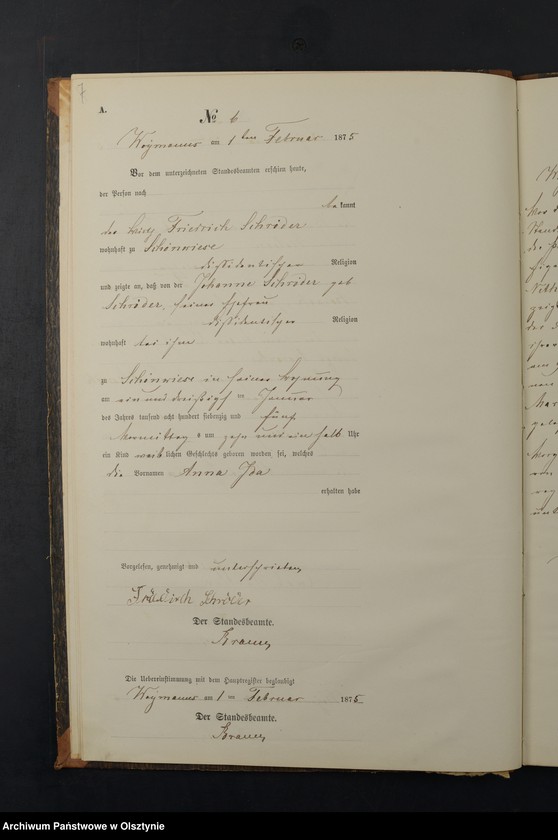 7
A.
№ 6
am 1ten Februar 1875
Vor dem unterzeichneten Standesbeamten erschien heute,
der Person nach
bekannt
der Friedrich Schröder
wohnhaft zu Schönwiese
dissidentischer Religion
und zeigte an, daß von der Johanne Schröder geb.
Schröder, seiner Ehefrau
dissidentischer Religion
wohnhaft bei ihm
zu Schönwiese in seiner Wohnung
am ein und dreißigsten Januar
des Jahres tausend acht hundert siebenzig und fünf
Vormittags um zehn und ein halb Uhr
ein Kind weiblichen Geschlechts geboren worden sei, welches
die Vornamen Anna Ida
erhalten habe
Vorgelesen, genehmigt und unterschrieben
Friedrich Schröder
Der Standesbeamte.
Die Uebereinstimmung mit dem Hauptregister beglaubigt
am 1ten Februar 1875
Der Standesbeamte.
Archiwum Państwowe w Olsztynie